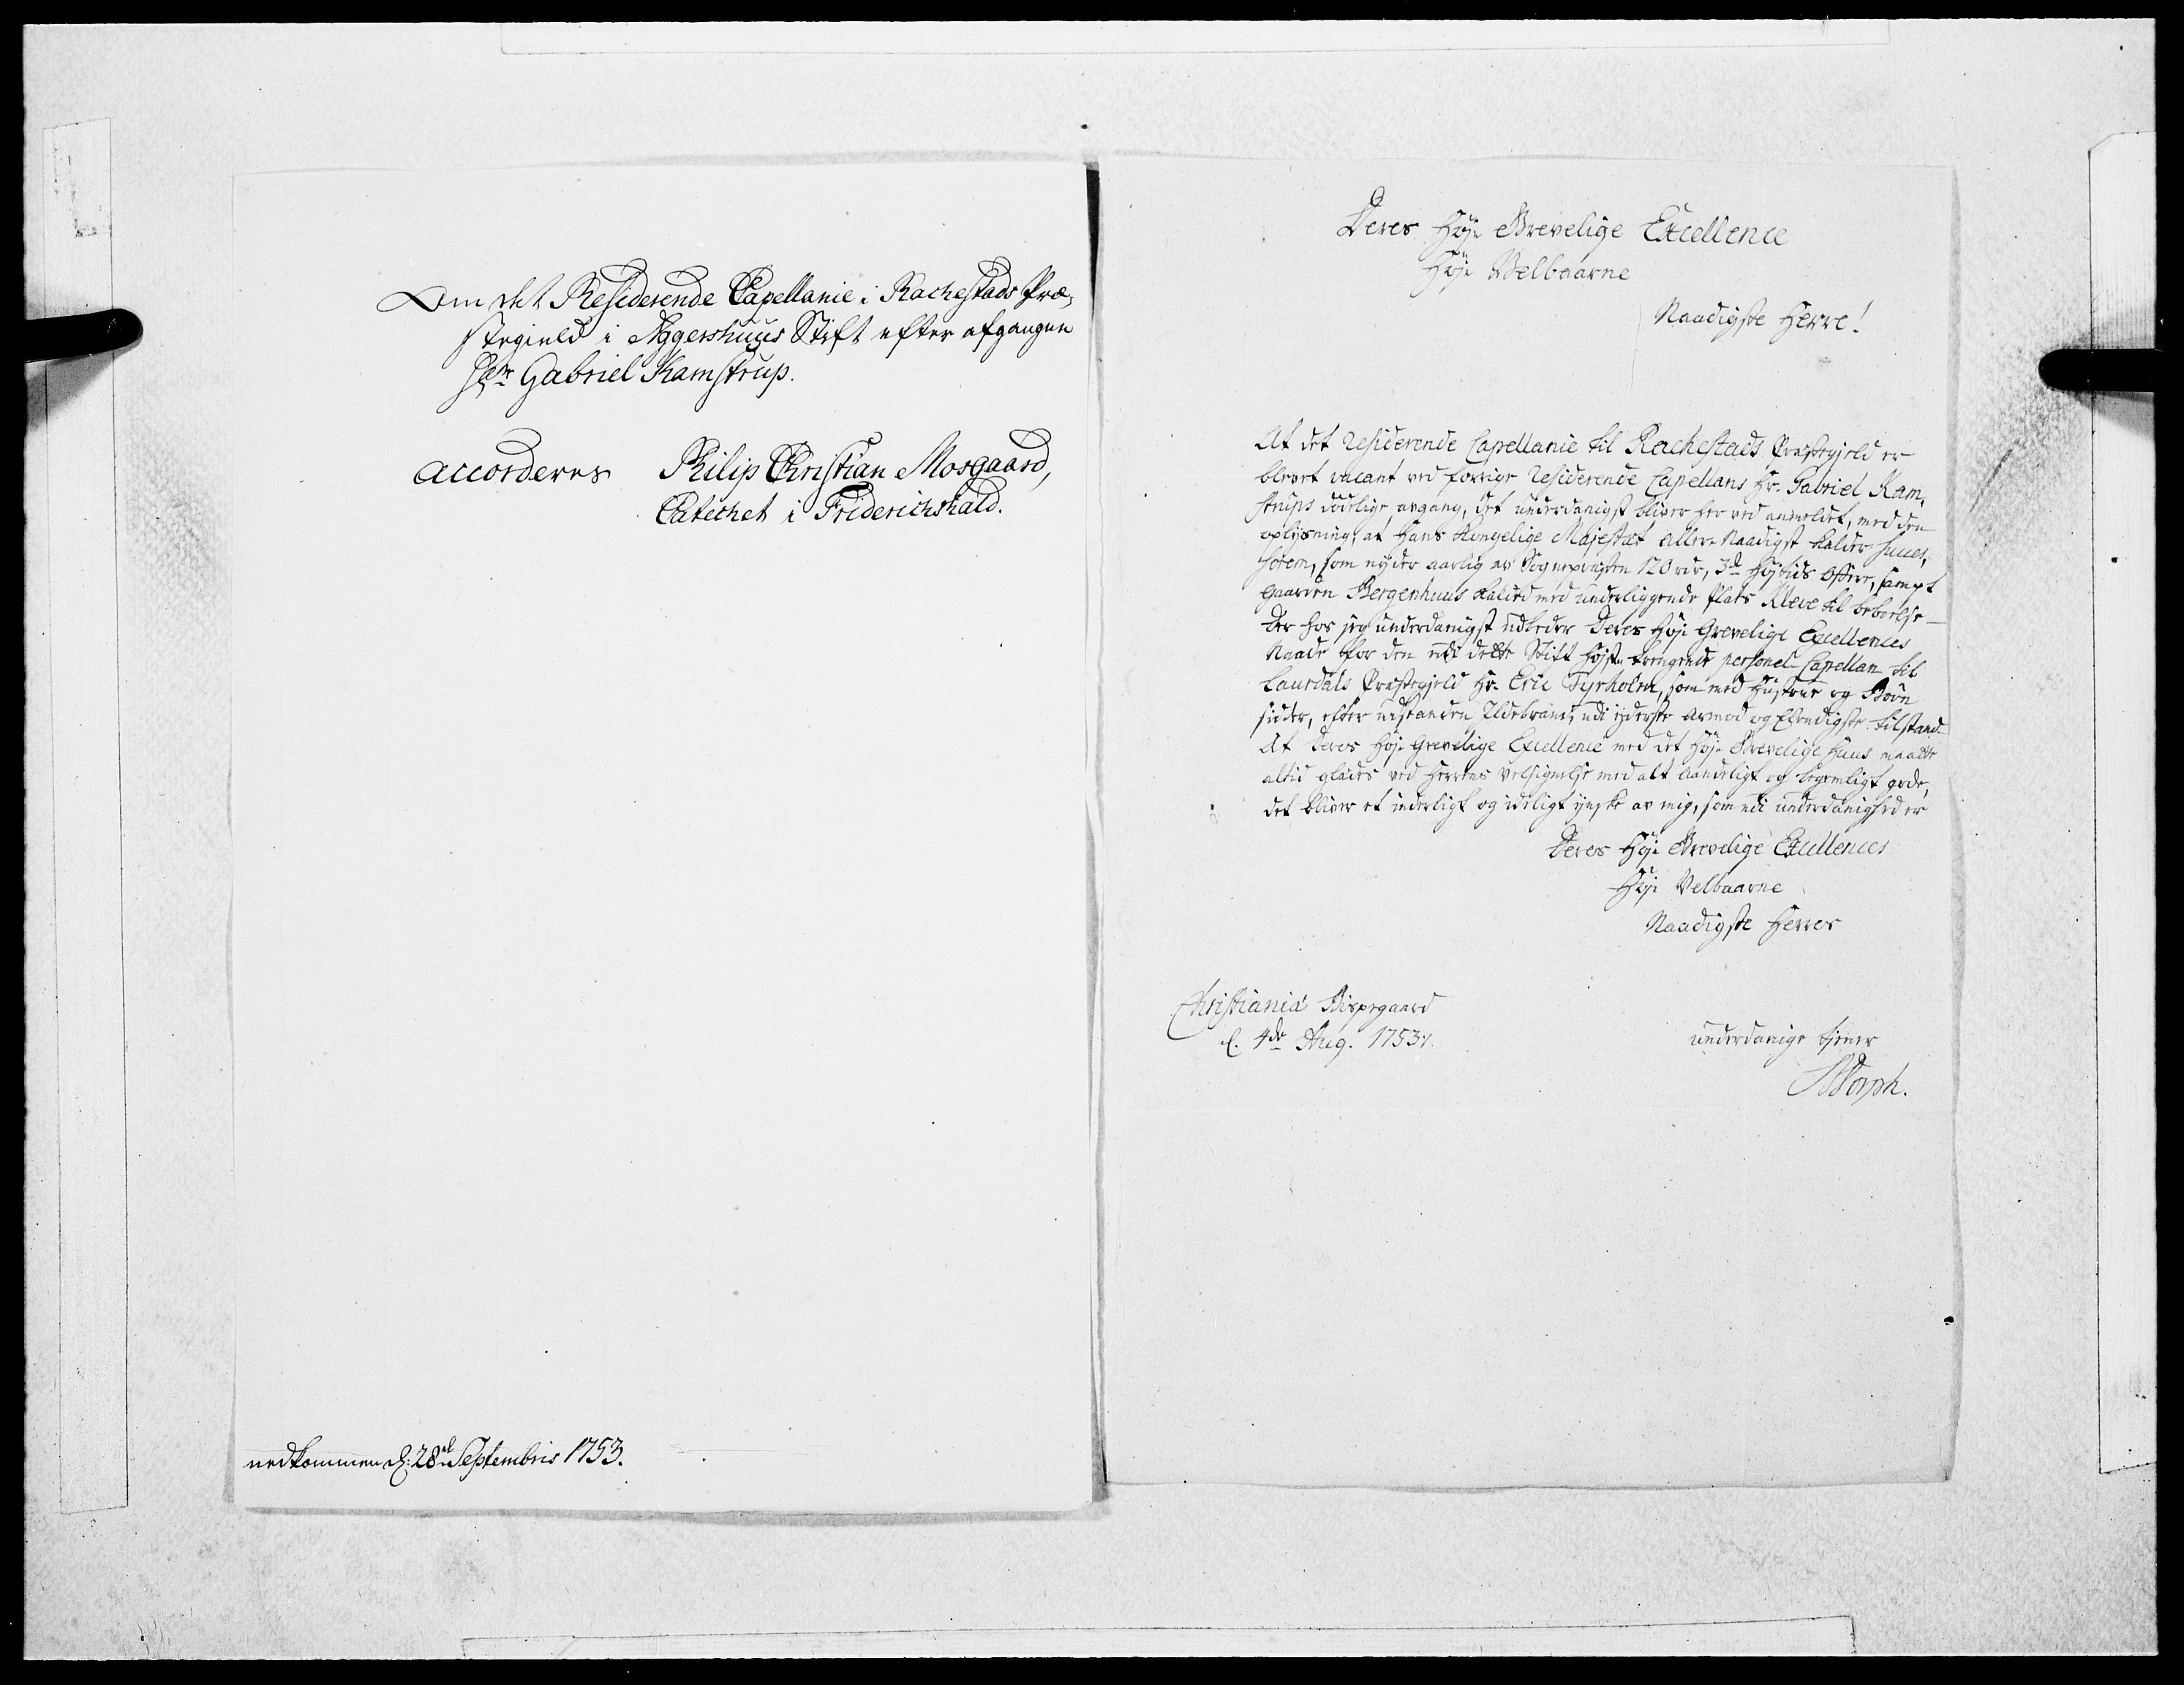 Om det Residerende Capellanie i Rachestads Præ-
stegield i Aggershuus Stift efter afgangne
Hr Gabriel Kamstrup.
accorderes Philip Christian Mosgaard,
Catechet i Friderichshald.
nedkommen d: 28de Septembris 1753.
Deres Høje Grevelige Excellence
Høje Velbaarne
Naadigste Herre!
At det residerende Capellanie til Rachestads Præstegjeld er
blevet vacant ved forrige residerende Capellans Hr. Gabriel Kam-
strups dødelige avgang, det underdanigst bliver her ved anmeldet, med den
oplysning, at Hans Kongelige Majestæt aller-Naadigst kalder
som nyder aarlig av Sognepræsten 120 rdr, 3de Højtids Offere, sampt
gaarden Bergenhuus kalded med underliggende Plads Kleve til beboelse
Der hos jeg underdanigst udbeder Deres Høje Grevelige Excellences
Naade for den udi dette Stift højst trængende personel Capellan til
Laurdals Præstegjeld Hr. Eric Tyrholm, som med Hustrue og Børn
sidder, efter udstanden Ildebrand, udi yderste armod og Elendigste tilstand.
At Deres Høje Grevelige Excellence med det Høje Grevelige Huus maatte
altid glædes ved Herrens velsignelse med alt aandeligt og legemligt gode,
det bliver et inderligt og ideligt ynske av mig, som udi underdanighed er
Deres Høje Grevelige Excellences
Høje Velbaarne
Naadigste Herres
Christiania Bispegaard
d. 4de Aug. 1753.
underdanige tjener
Dorph.